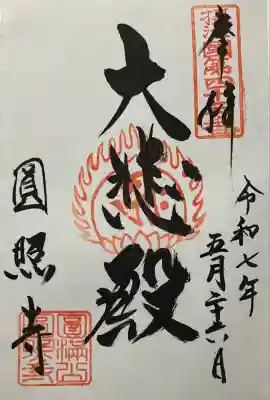 奉拝
大悲殿
令和七年
五月二十六日
圓照寺
圓満山